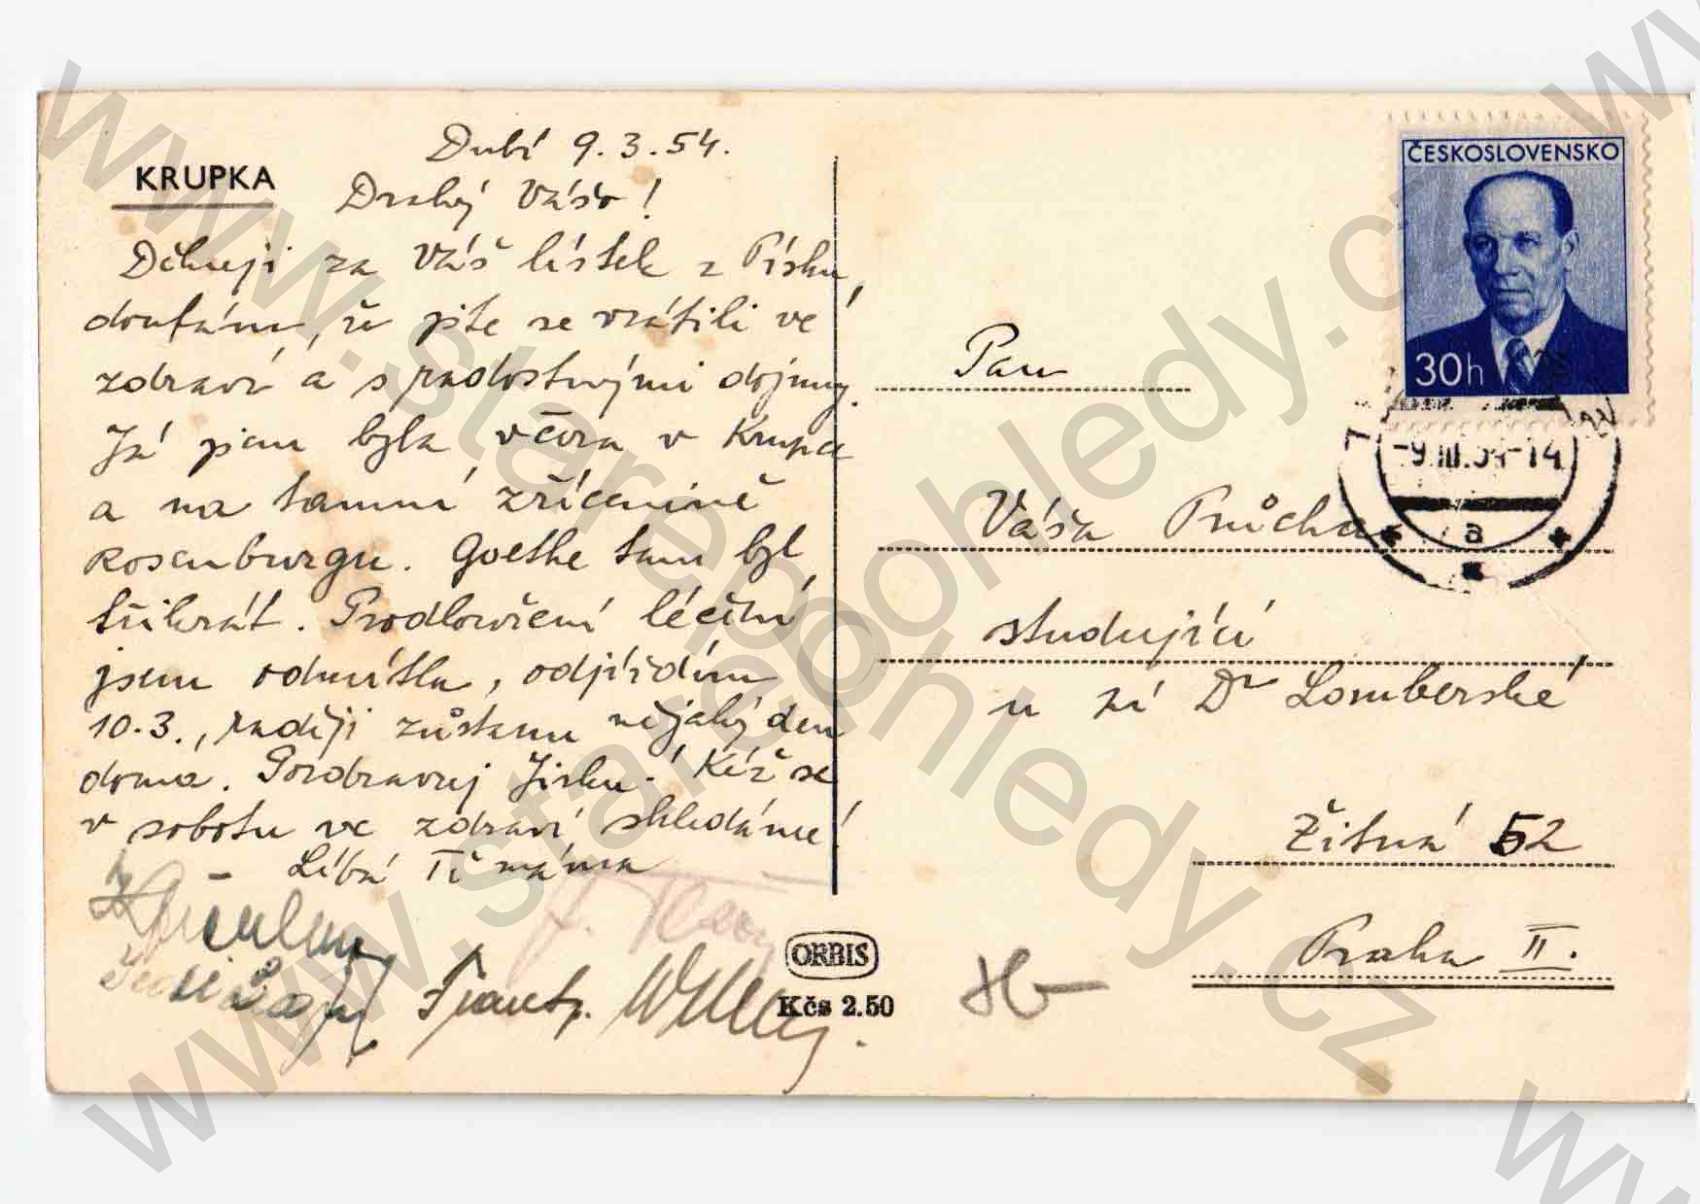 KRUPKA
Dubí 9.3.54.
Drahý Vášo!
Děkuji za Váš lístek z Písku,
doufám, že jste se vrátili ve
zdraví a s radostnými dojmy.
Já jsem byla včera v Krupce
a na tamní zřícenině
Rosenburgu. Goethe tam byl
třikrát. Prodloužení léčení
jsem odmítla, odjíždím
10.3., raději zůstanu nějaký den
doma. Pozdravuj Jirku. Kéž se
v sobotu ve zdraví shledáme!
- Líbá Tě máma
ORBIS
Kčs 2.50
ČESKOSLOVENSKO
30h
-9.III.54-14
a
Pan
Váša Průcha
studující
u pí Dr Lomberské
Žitná 52
Praha II.
www.starepohledy.cz
www.starepohledy.cz